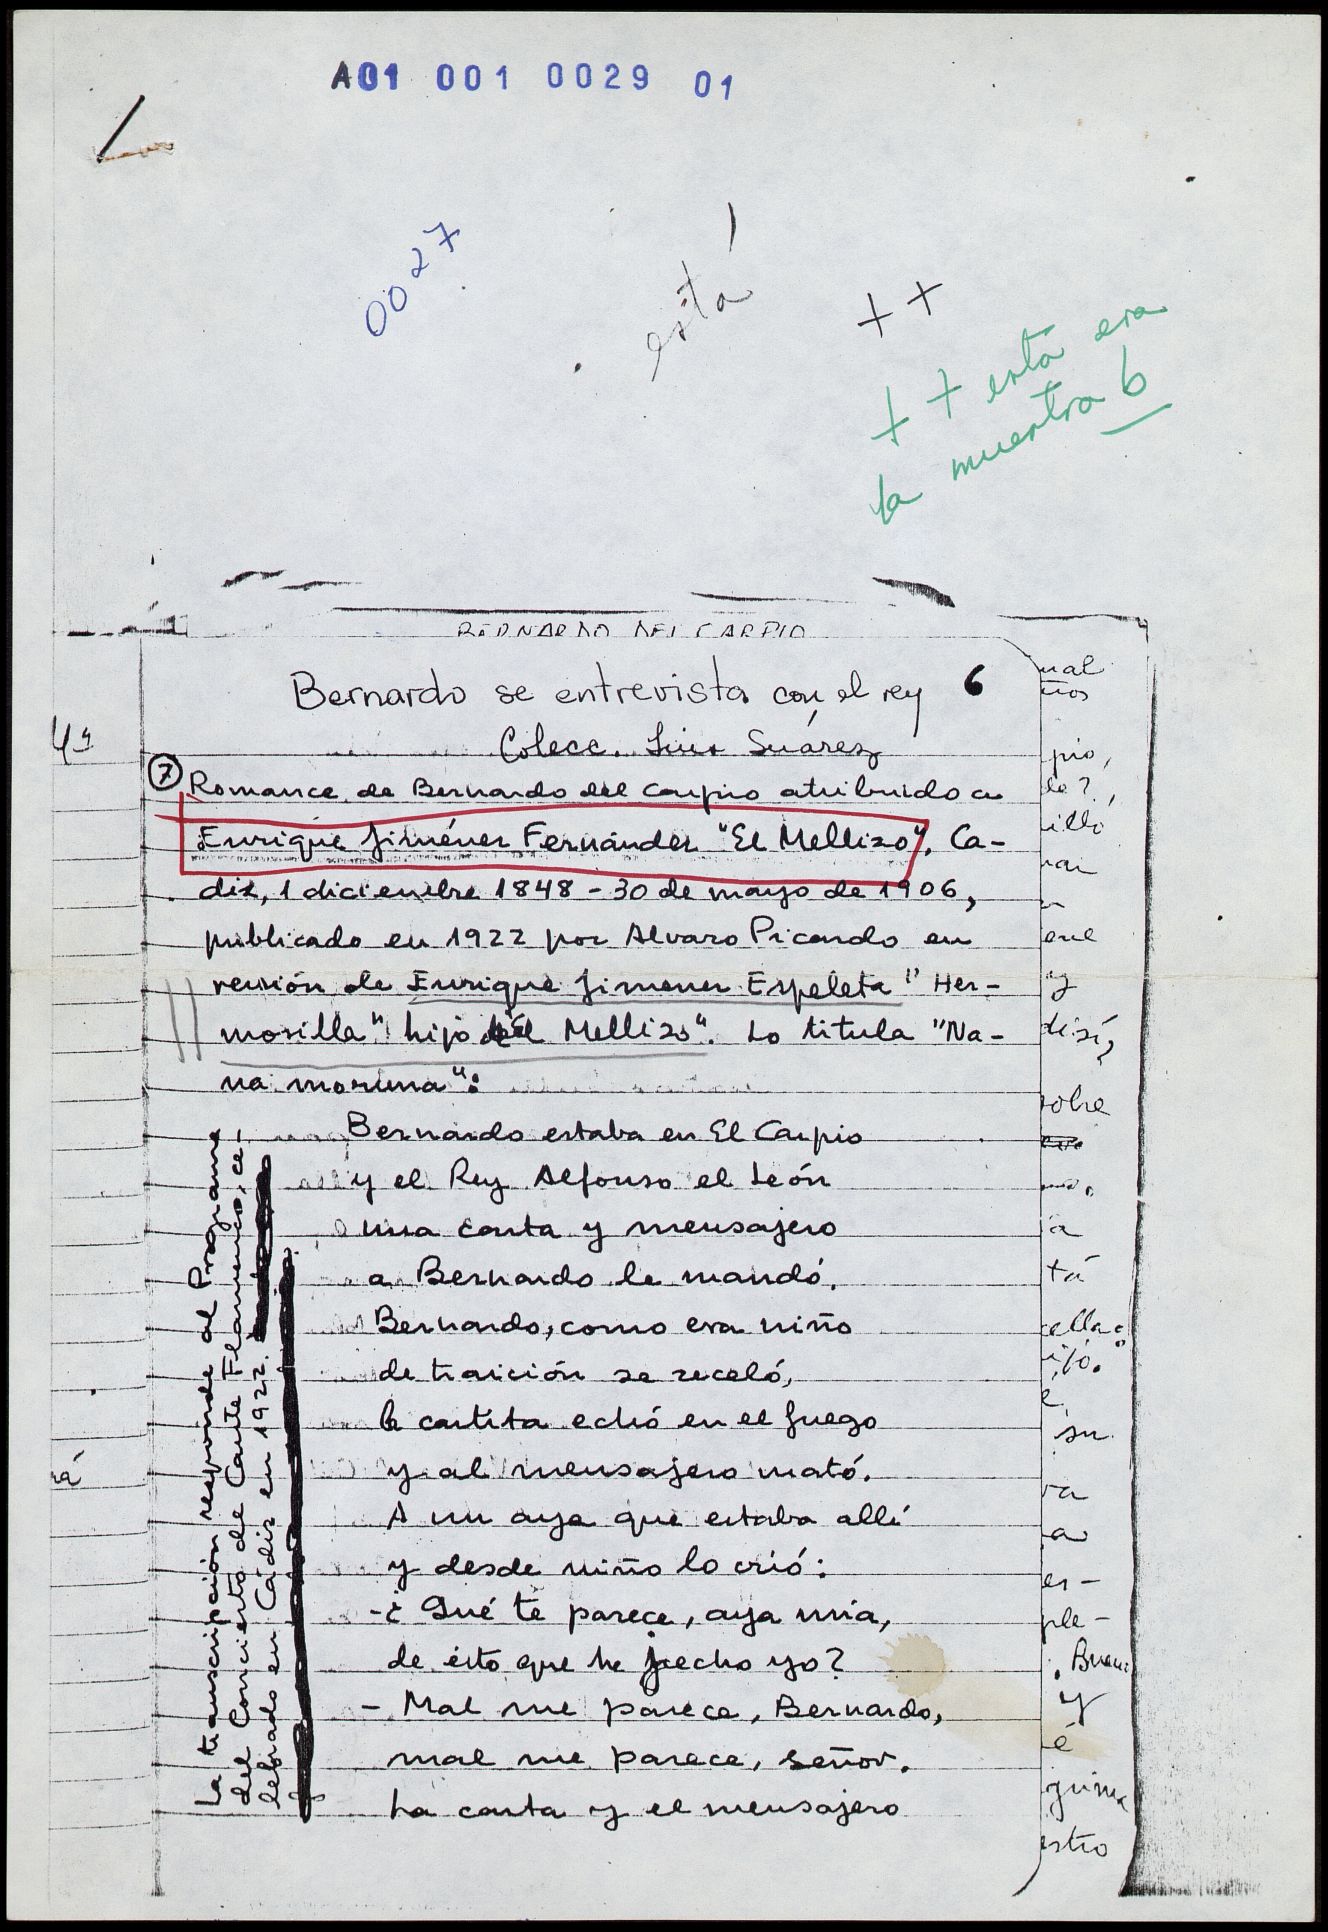 A01 001 0029 01
0027
está
++
++ esta era
la muestra 6
BERNARDO DEL CARPIO
Bernardo se entrevista con el rey 6
Colecc. Luis Suárez
4ª
7 Romance de Bernardo del Carpio atribuido a
Enrique Jiménez Fernández "El Mellizo", Ca-
diz, 1 diciembre 1848 - 30 de mayo de 1906,
publicado en 1922 por Alvaro Picardo en
versión de Enrique Jimenez Espeleta "Her-
mosilla" hijo del Mellizo". Lo titula "Na-
na moruna":
Bernardo estaba en El Carpio
y el Rey Alfonso el León
una carta y mensajero
a Bernardo le mandó.
Bernardo, como era niño
de traición se receló,
la cartita echó en el fuego
y al mensajero mató.
A un aya que estaba allí
y desde niño lo crió:
-¿Qué te parece, aya mía,
de esto que he jecho yo?
- Mal me parece, Bernardo,
mal me parece, señor.
La carta y el mensajero
La transcripción responde al Programa
del Concierto de Cante Flamenco, ce-
lebrado en Cádiz en 1922.
ual
ños
pio,
le?
illó
ene
y
sobre
a
tá
ijo.
su
va
a
er-
ple-
. Buen
y
é
estro
rá